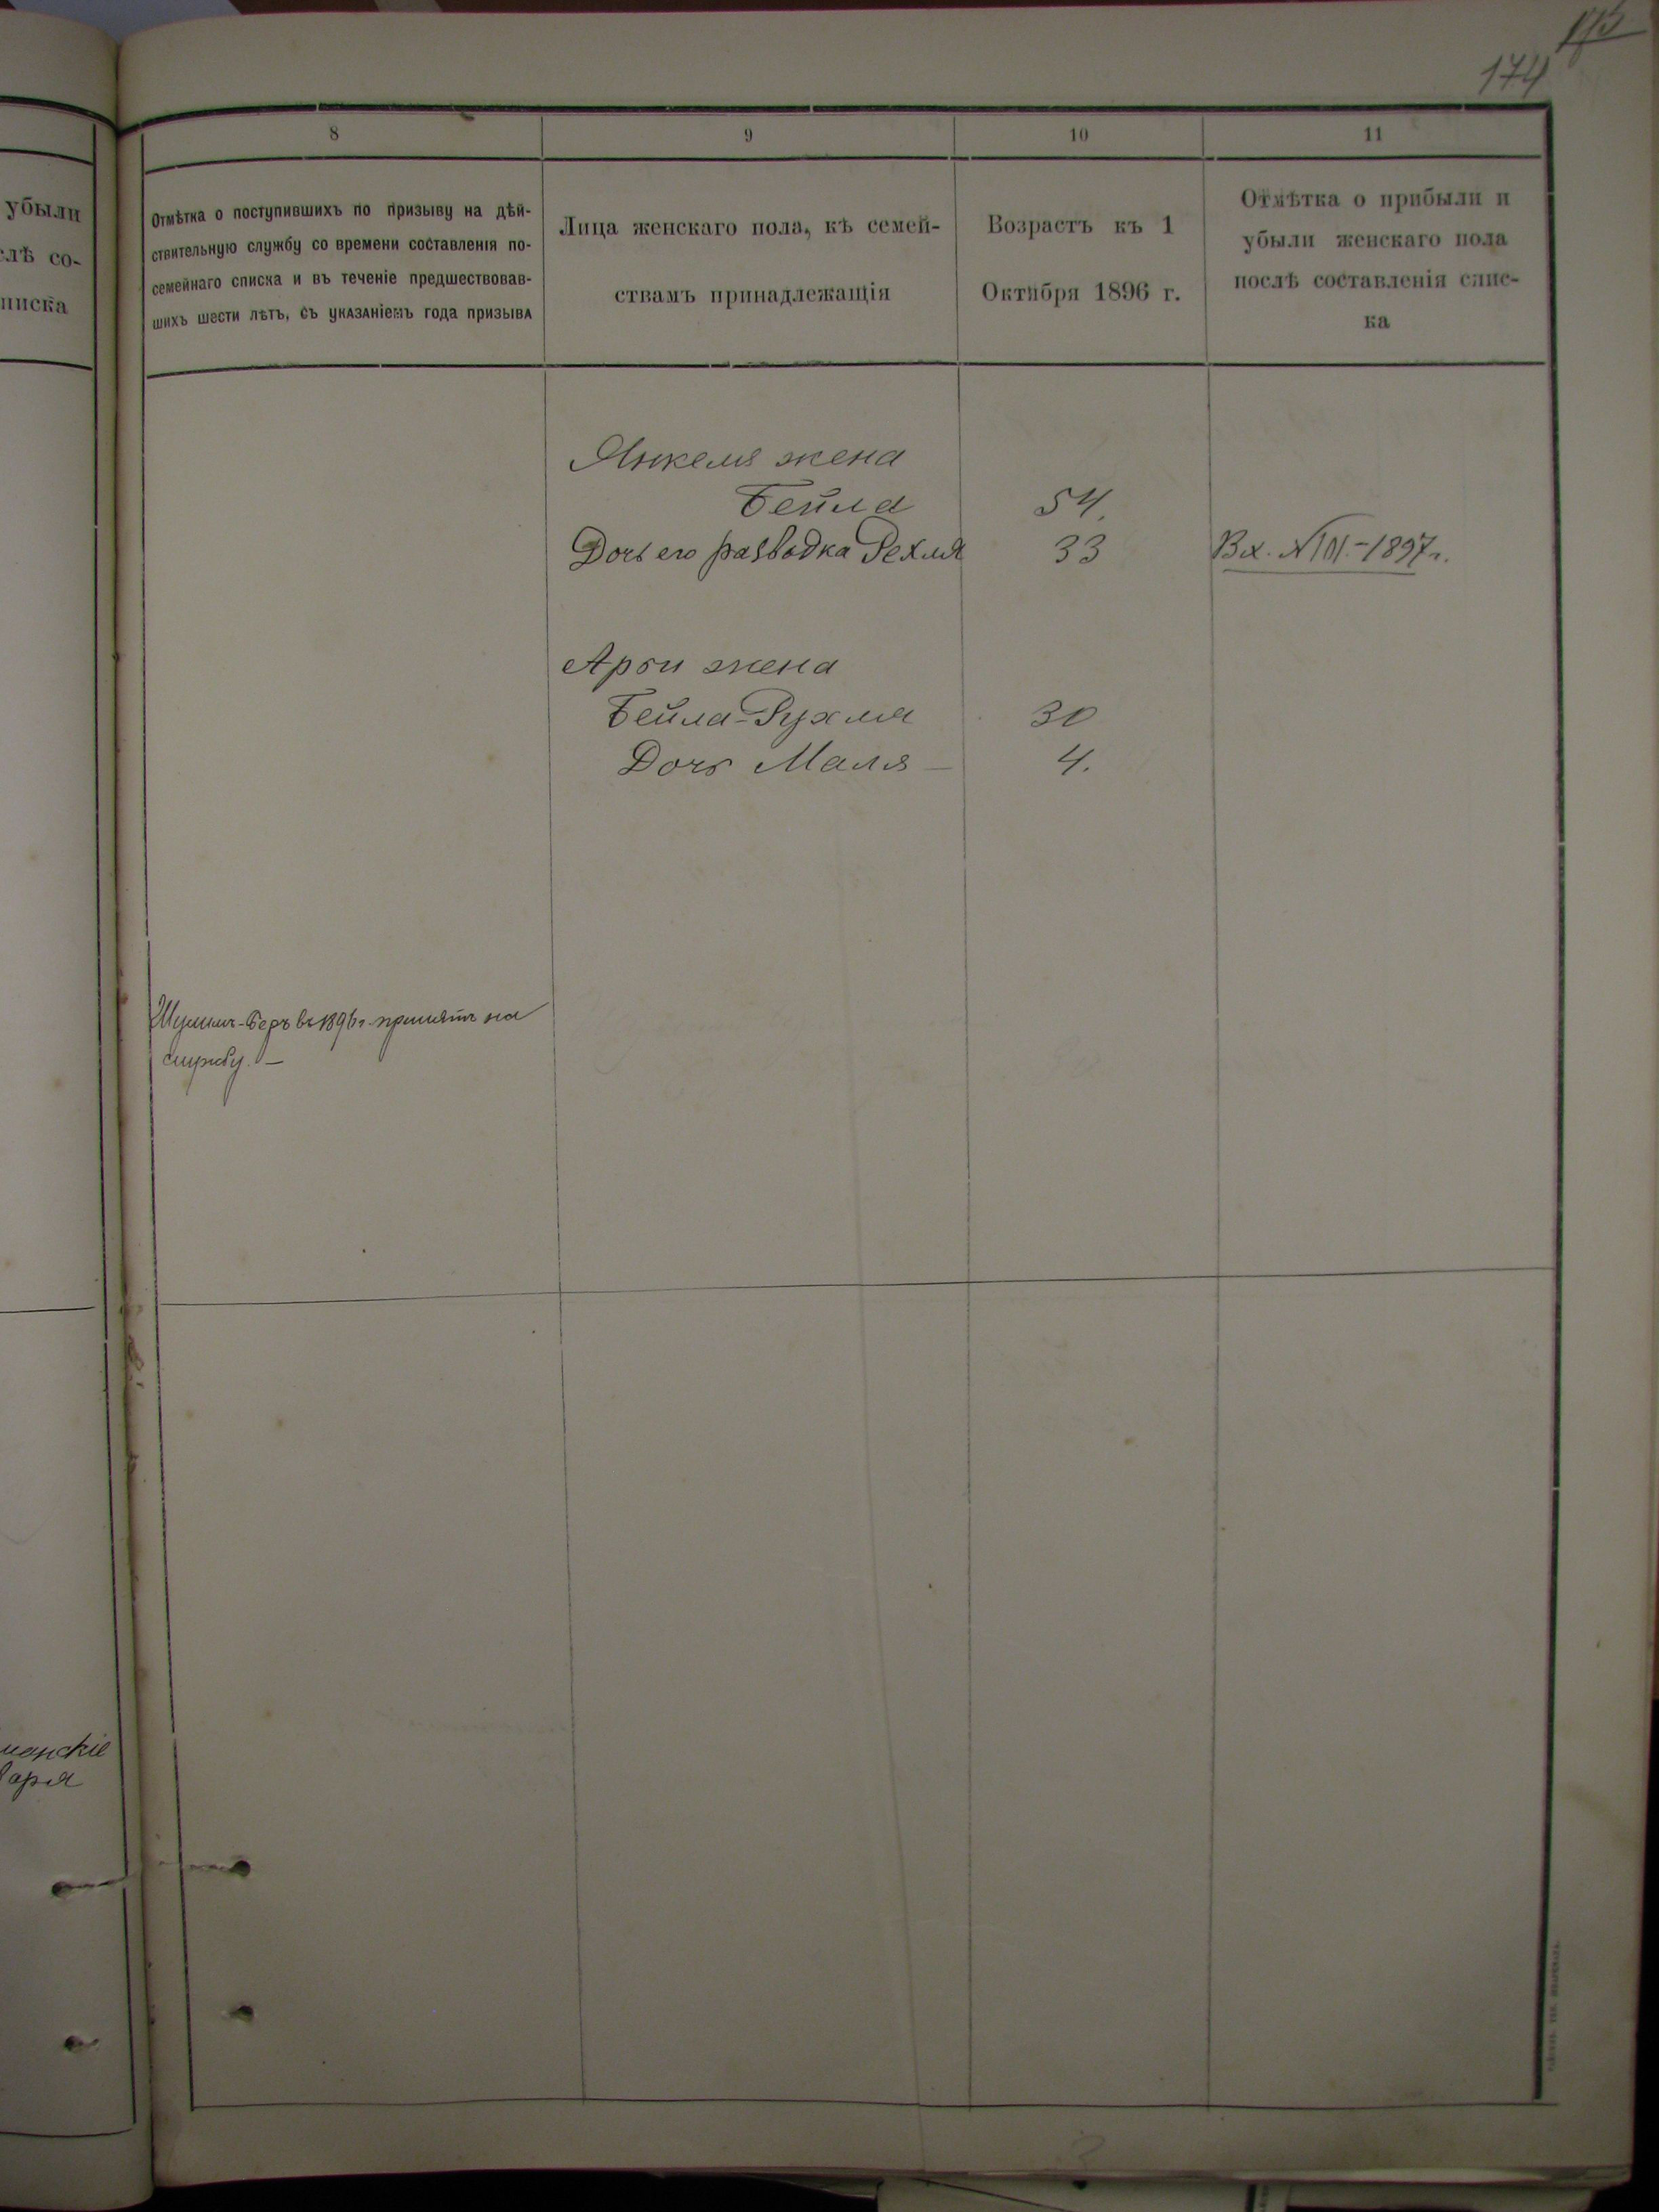 173
174
убыли
слѣ со-
писка
8
9
10
11
Отмѣтка о поступившихъ по призыву на дѣй-
ствительную службу со времени составленія по-
семейнаго списка и въ теченіе предшествовав-
шихъ шести лѣтъ, съ указаніемъ года призыва
Лица женскаго пола, къ семей-
ствамъ принадлежащія
Возрастъ къ 1
Октября 1896 г.
Отмѣтка о прибыли и
убыли женскаго пола
послѣ составленія спис-
ка
Янкеля жена
Бейла 54
Дочь его разводка Рехля 33 Вх. № 101.-1897г.
Арон жена
Бейла-Рухля 30
Дочь Маля 4.
Шулимъ-Беръ въ 1896 г. принятъ на
службу. —